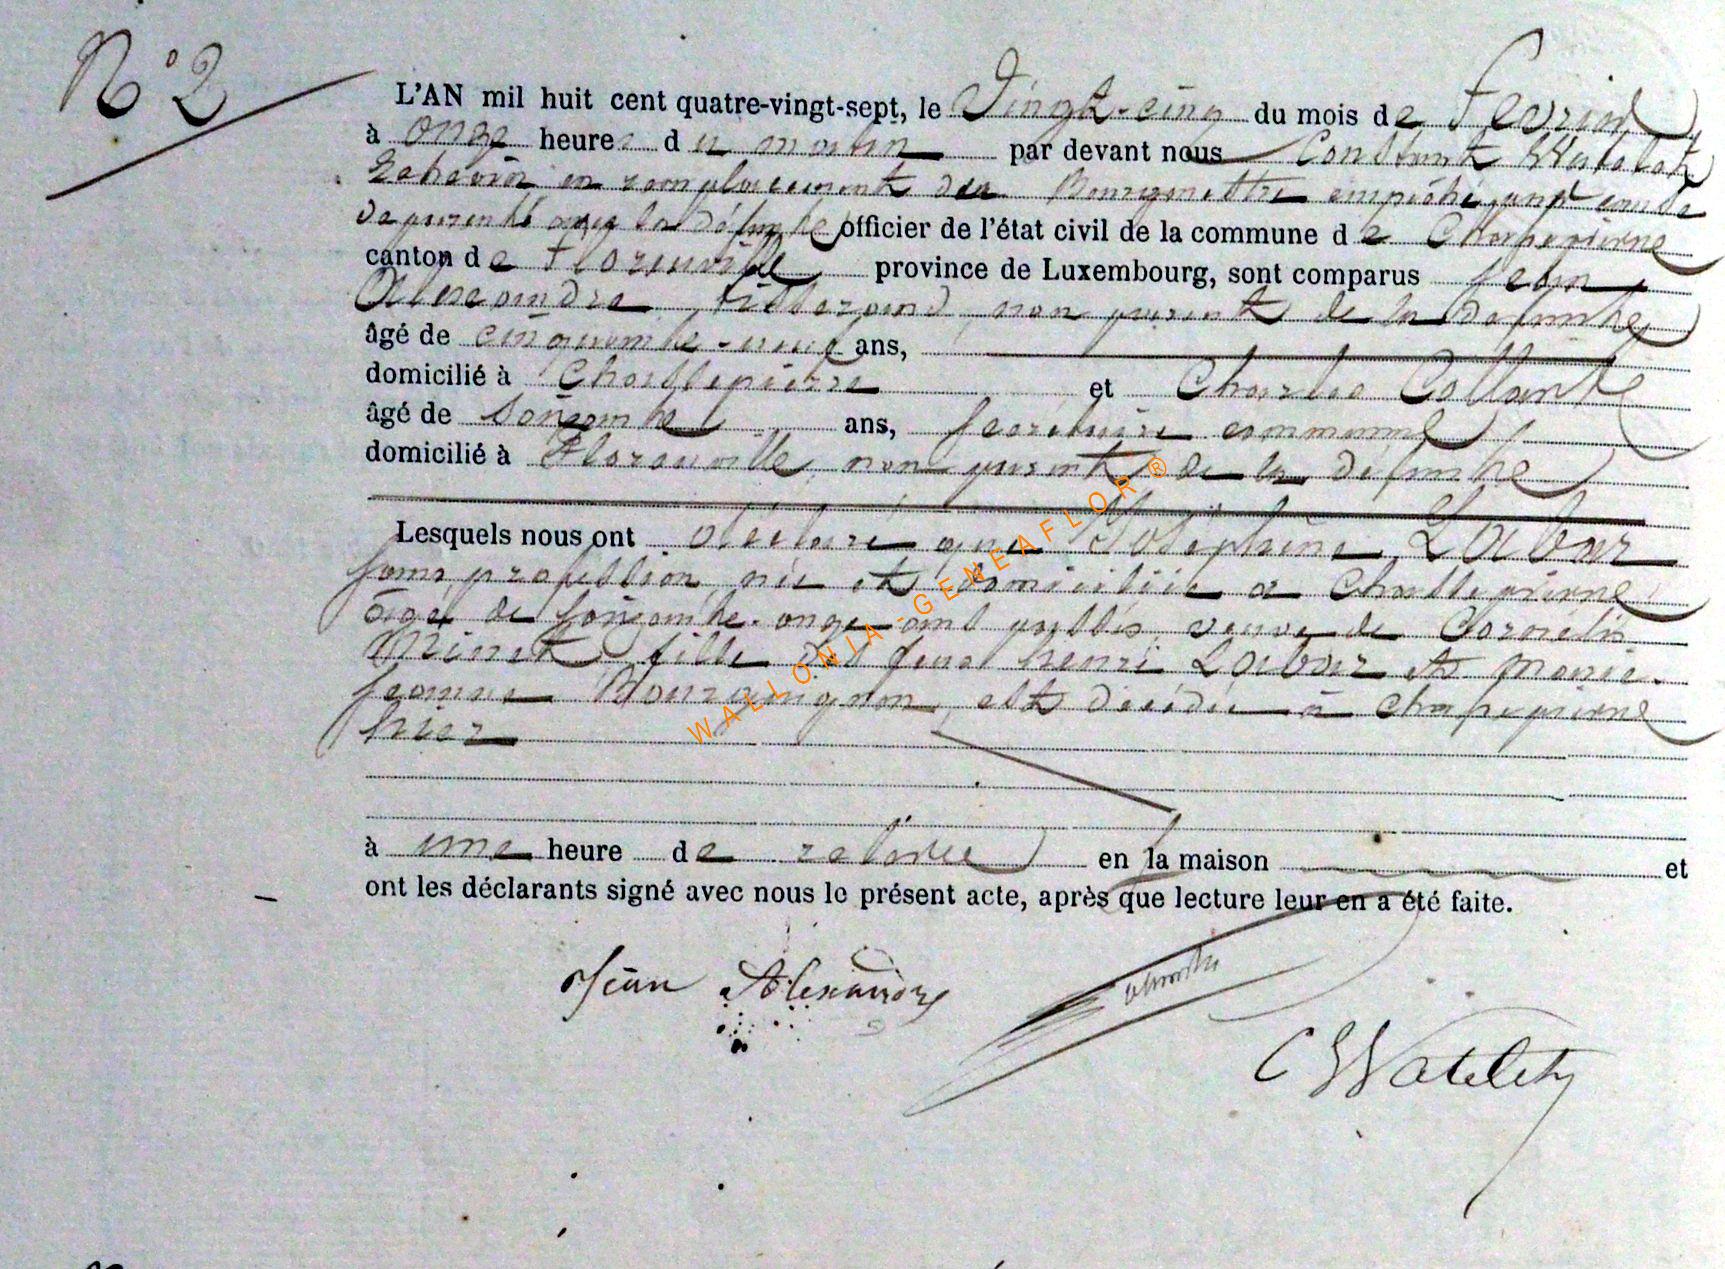 N° 2
L'AN mil huit cent quatre-vingt-sept, le Vingt-cinq du mois de Fevrier
à onze heures du matin par devant nous Constant Watelet
Echevin en remplacement du Bourgmestre empêché pour cause
de parenté avec la défunte officier de l'état civil de la commune de Chassepierre
canton de Florenville province de Luxembourg, sont comparus Jean
Alexandre, tisserand, non parent de la défunte
âgé de cinquante-neuf ans,
domicilié à Chassepierre et Charles
âgé de soixante ans, secrétaire communal
domicilié à Florenville, non parent de la défunte
Lesquels nous ont déclaré que Joséphine
sans profession, née et domiciliée à Chassepierre
âgée de soixante-onze ans passés, veuve de Cornelis
fille des feus Henri et Marie-
Jeanne Bourguignon, est décédée à Chassepierre
hier
à une heure de relevée en sa maison et
ont les déclarants signé avec nous le présent acte, après que lecture leur en a été faite.
Jean Alexandre
C Watelet
WALLONIA-GENEAFLOR®